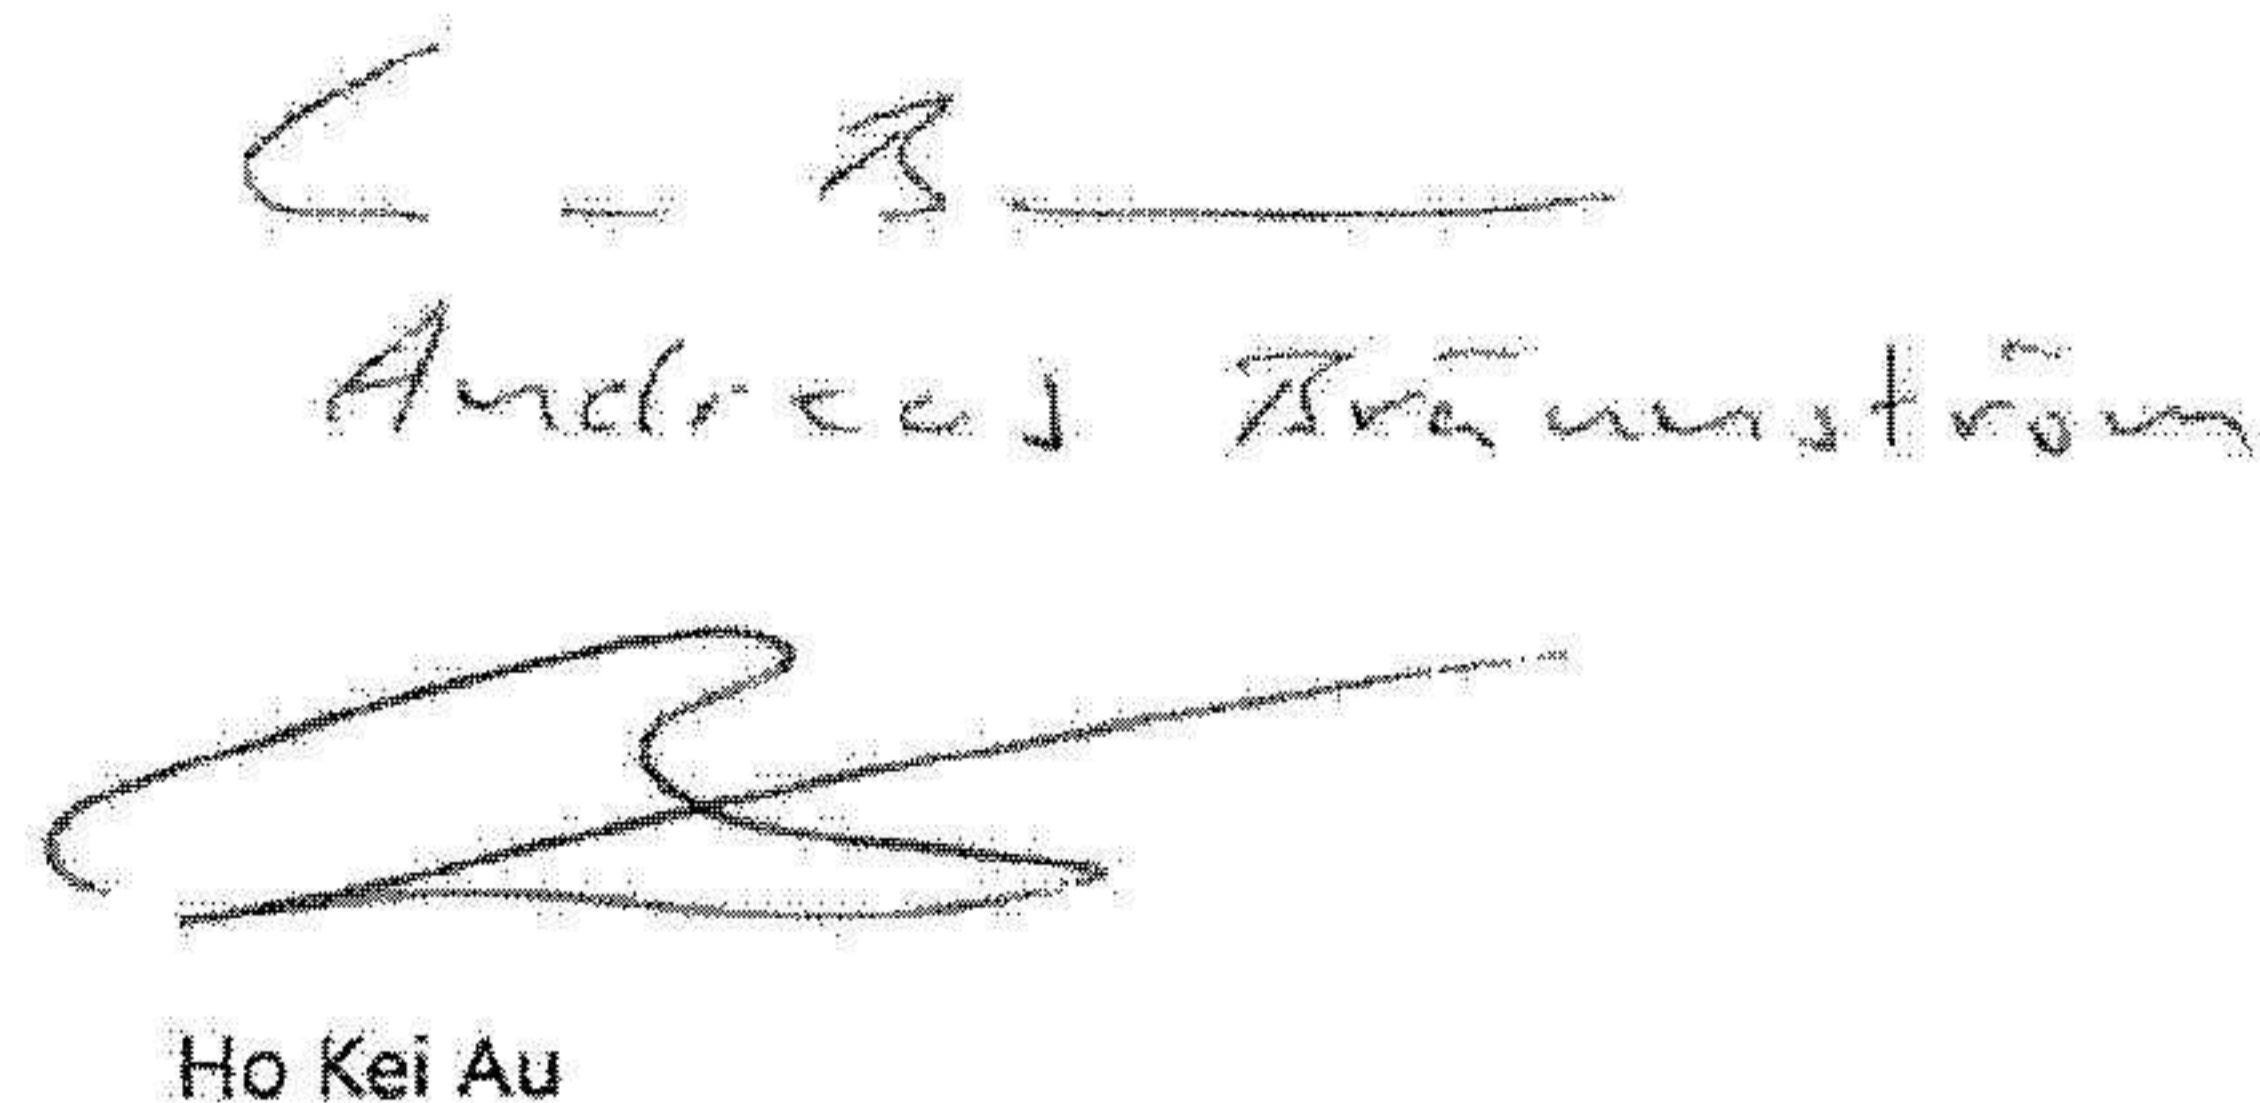 Andreas Brännström
Ho Kei Au